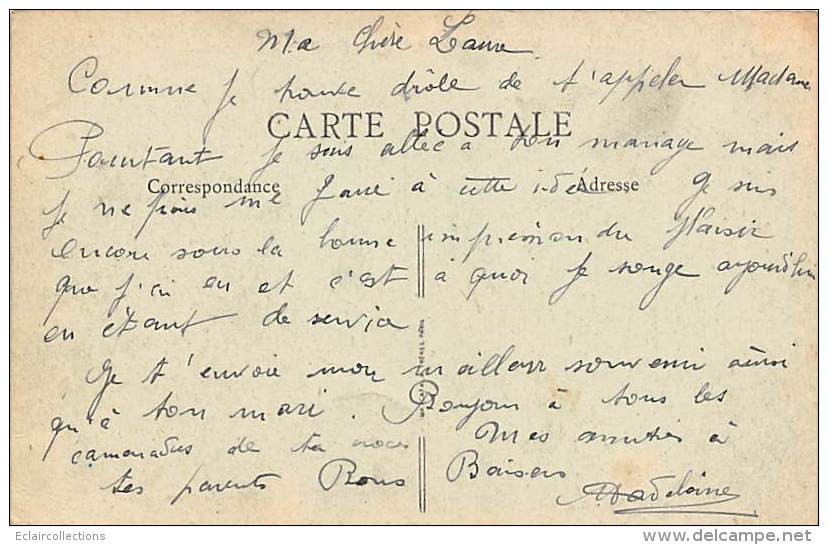 Ma Chère Laure
Comme je trouve drôle de t'appeler Madame
CARTE POSTALE
Pourtant je suis allée à ton mariage mais
Correspondance Adresse
je ne puis me faire à cette idée Je suis
encore sous la bonne impression du plaisir
que j'ai eu et c'est à quoi je songe aujourd'hui
en étant de service
Je t'envoie mon meilleur souvenir ainsi
qu'à ton mari. Bonjour à tous les
camarades de ta noce Mes amitiés à
tes parents Bons Baisers
Madeleine
Eclaircollections
delcampe.net